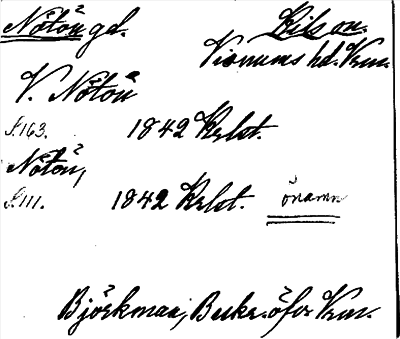 Nötön gd. Bils sn.
Visnums hd. Vrm.
V. Nötön
S. 163. 1842 Krlst.
Nötön,
S. 111. 1842 Krlst. önamn
Björkman, Beskr. öfver Vrm.